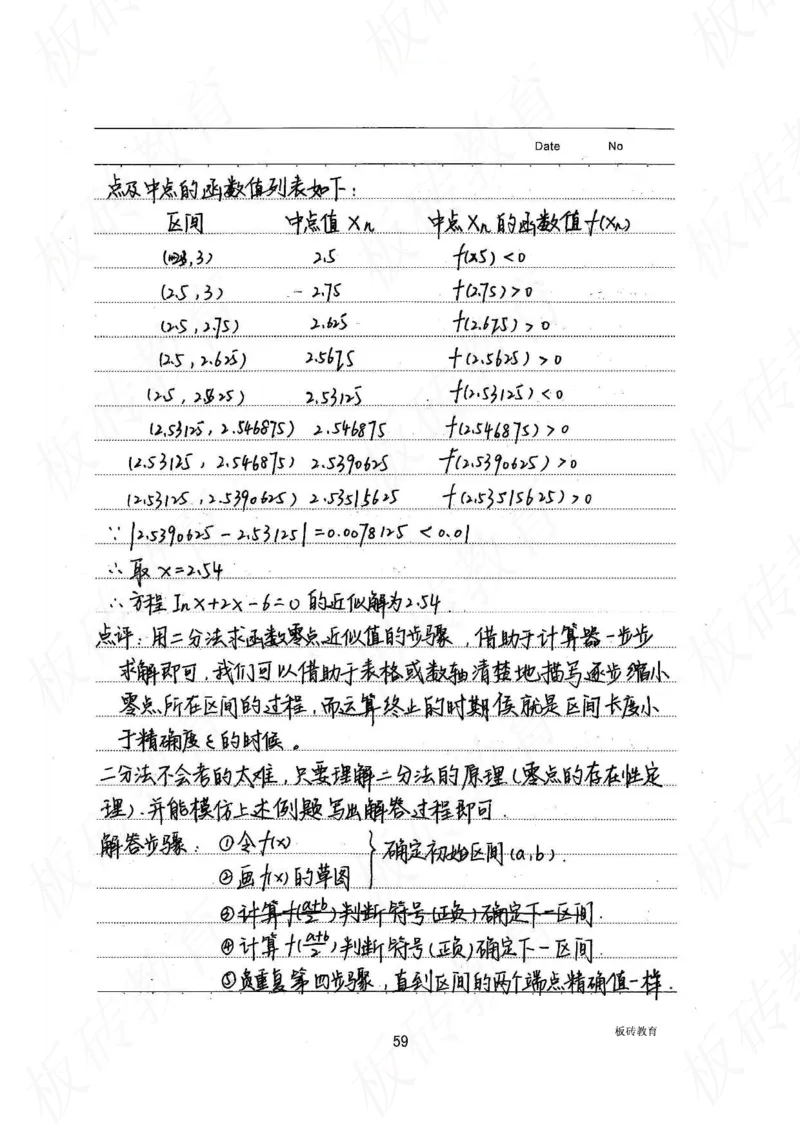 Date No
点及中点的函数值列表如下：
区间 中点值 Xn 中点 Xn 的函数值 f(Xn)
,3) 2.5 f(2.5) <0
(2.5 ,3) - 2.75 f(2.75) >0
(2.5 , 2.75) 2.625 f(2.675) > 0
(2.5 , 2.625) 2.5675 f(2.5625) > 0
(2.5 , 2.5625) 2.53125 f(2.53125) < 0
(2.53125 , 2.546875) 2.546875 f(2.546875) > 0
(2.53125 , 2.546875) 2.5390625 f(2.5390625) > 0
(2.53125 , 2.5390625) 2.53515625 f(2.53515625) > 0
∵ |2.5390625 - 2.53125| = 0.0078125 < 0.01
∴ 取 x=2.54
∴ 方程 Inx+2x-6=0 的近似解为2.54.
点评：用二分法求函数零点近似值的步骤，借助于计算器一步步
求解即可，我们可以借助于表格或数轴清楚地描写逐步缩小
零点所在区间的过程，而运算终止的时期候就是区间长度小
于精确度ε的时候。
二分法不会考的太难，只要理解二分法的原理(零点的存在性定
理)，并能模仿上述例题写出解答过程即可.
解答步骤：①令f(x) } 确定初始区间(a,b).
②画f(x)的草图
③计算f(a+b/2)判断符号(正负)确定下一区间.
④计算f(a+b/2)判断符号(正负)确定下一区间.
⑤负重复第四步骤，直到区间的两个端点精确值一样.
板砖教育
59